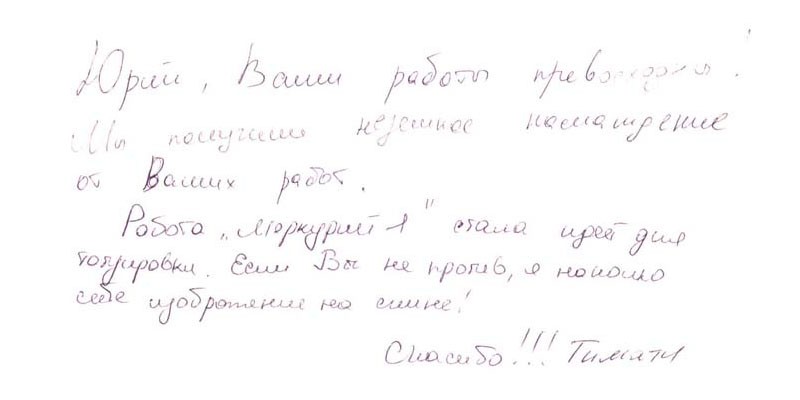 Юрий, Ваши работы превосходны!
Мы получили неземное наслаждение
от Ваших работ.
Работа „Меркурий 1" стала идей для
татуировки. Если Вы не против, я наколю
себе изображение на спине!
Спасибо!!! Тимати